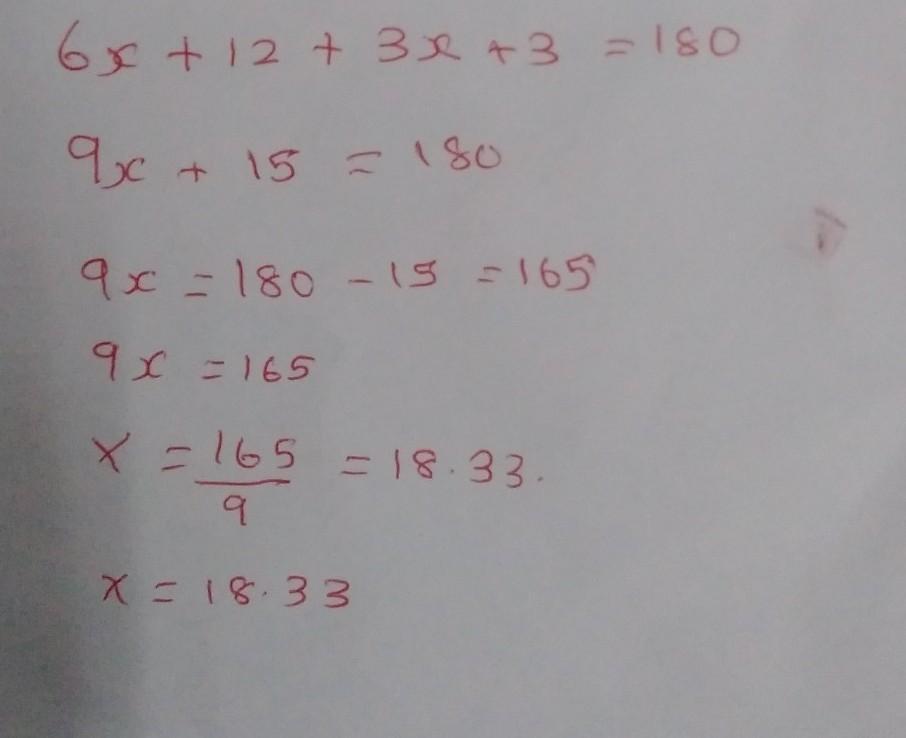 6x + 12 + 3x + 3 = 180
9x + 15 = 180
9x = 180 - 15 = 165
9x = 165
x = 165/9 = 18.33.
x = 18.33